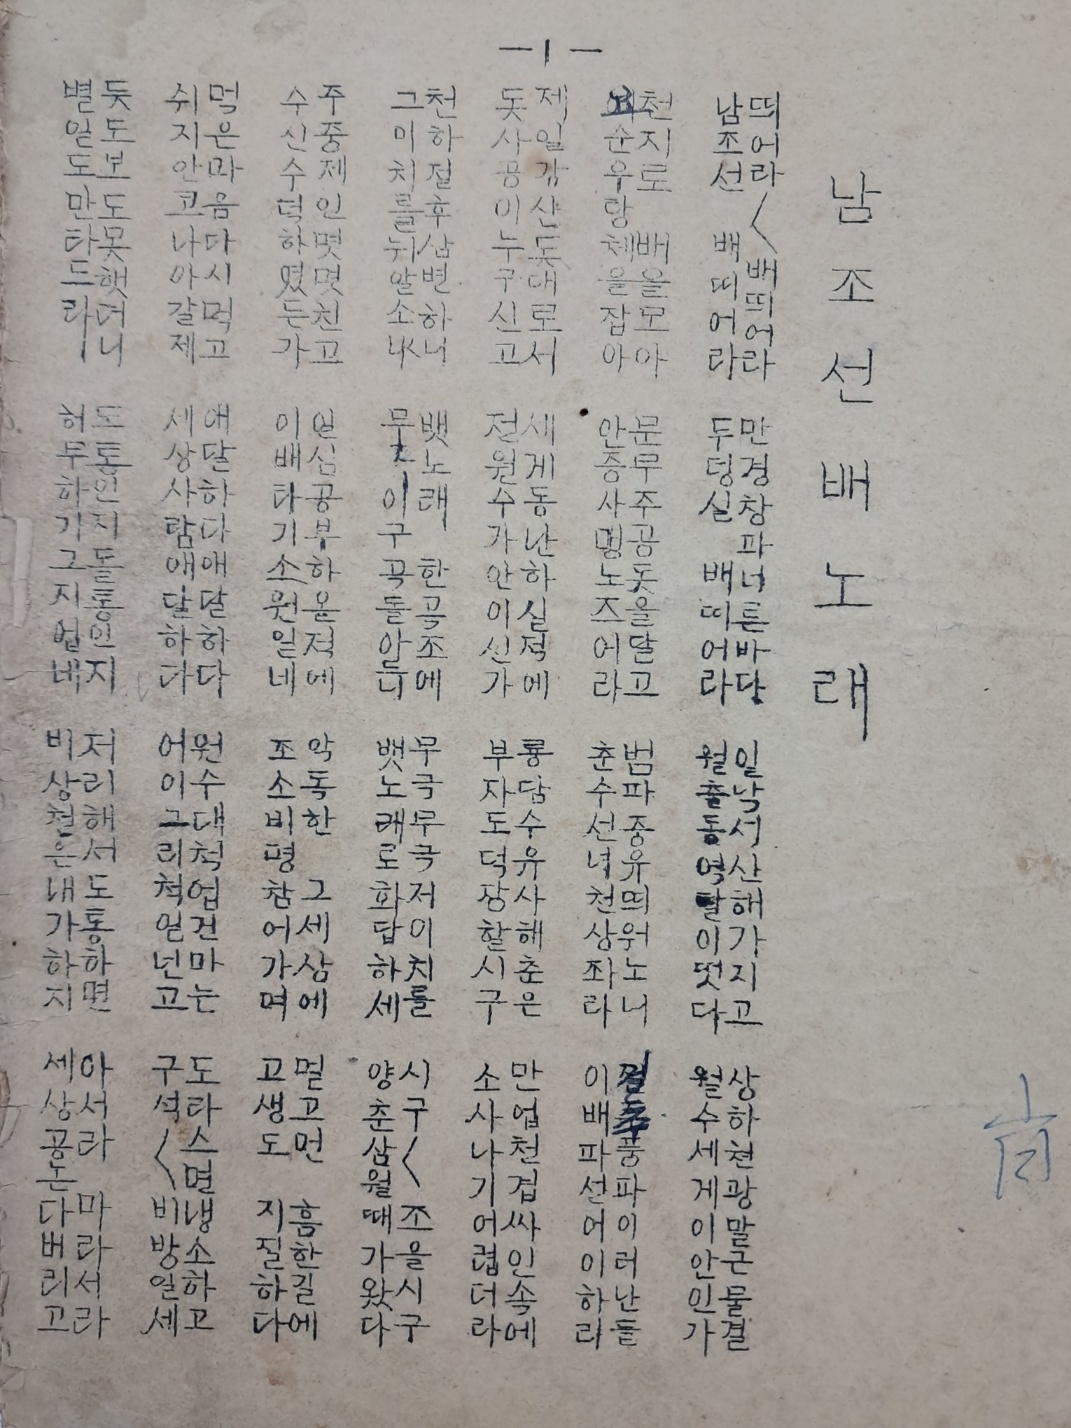 —1—
남조선배노래
띄어라〱 배띄어라
남조선 배띠어라
만경창파너른바다
두덩실 배띠어라
일낙서산해가지고
월출동영달이떳다
상하천광말근물결
월수세게이안인가
천지로 배을모아
요순우탕체을잡아
문무주공돗을달고
안증사멩노즈어라
범파중유띄워노니
춘수선녀천상좌라
걸주풍파이러난들
이배파선어이하리
제일강산돗대로서
돗사공이누구신고
세게동난하실적에
전원수가안이신가
룡담수유사해춘은
부자도덕장할시구
만업천겁싸인속에
소사나기어렵더라
천하절후삼변하니
그이치를뉘알소냐
뱃노래 한곡조에
이구곡돌아드니
무극무극저이치를
뱃노래로화답하세
시구〱 조을시구
양춘삼월때가왔다
주중제인몃몃친고
수신수덕하엿든가
일심공부하올적에
이배타기소원일네
악독한 그세상에
조소비평참어가며
멀고먼 흠한길에
고생도 지질하다
먹은마음다시먹고
쉬지안고나아갈제
애달하다애달하다
세상사람애달하다
원수대척업건마는
어이그리척일넌고
도라스면냉소하고
구석〱 비방일세
듯도보도못햇더니
별일도만타드라
도통인지돌통인지
허무하기그지업네
저리해서도통하면
비상천은내가하지
아서라 마라서라
세상공논다버리고